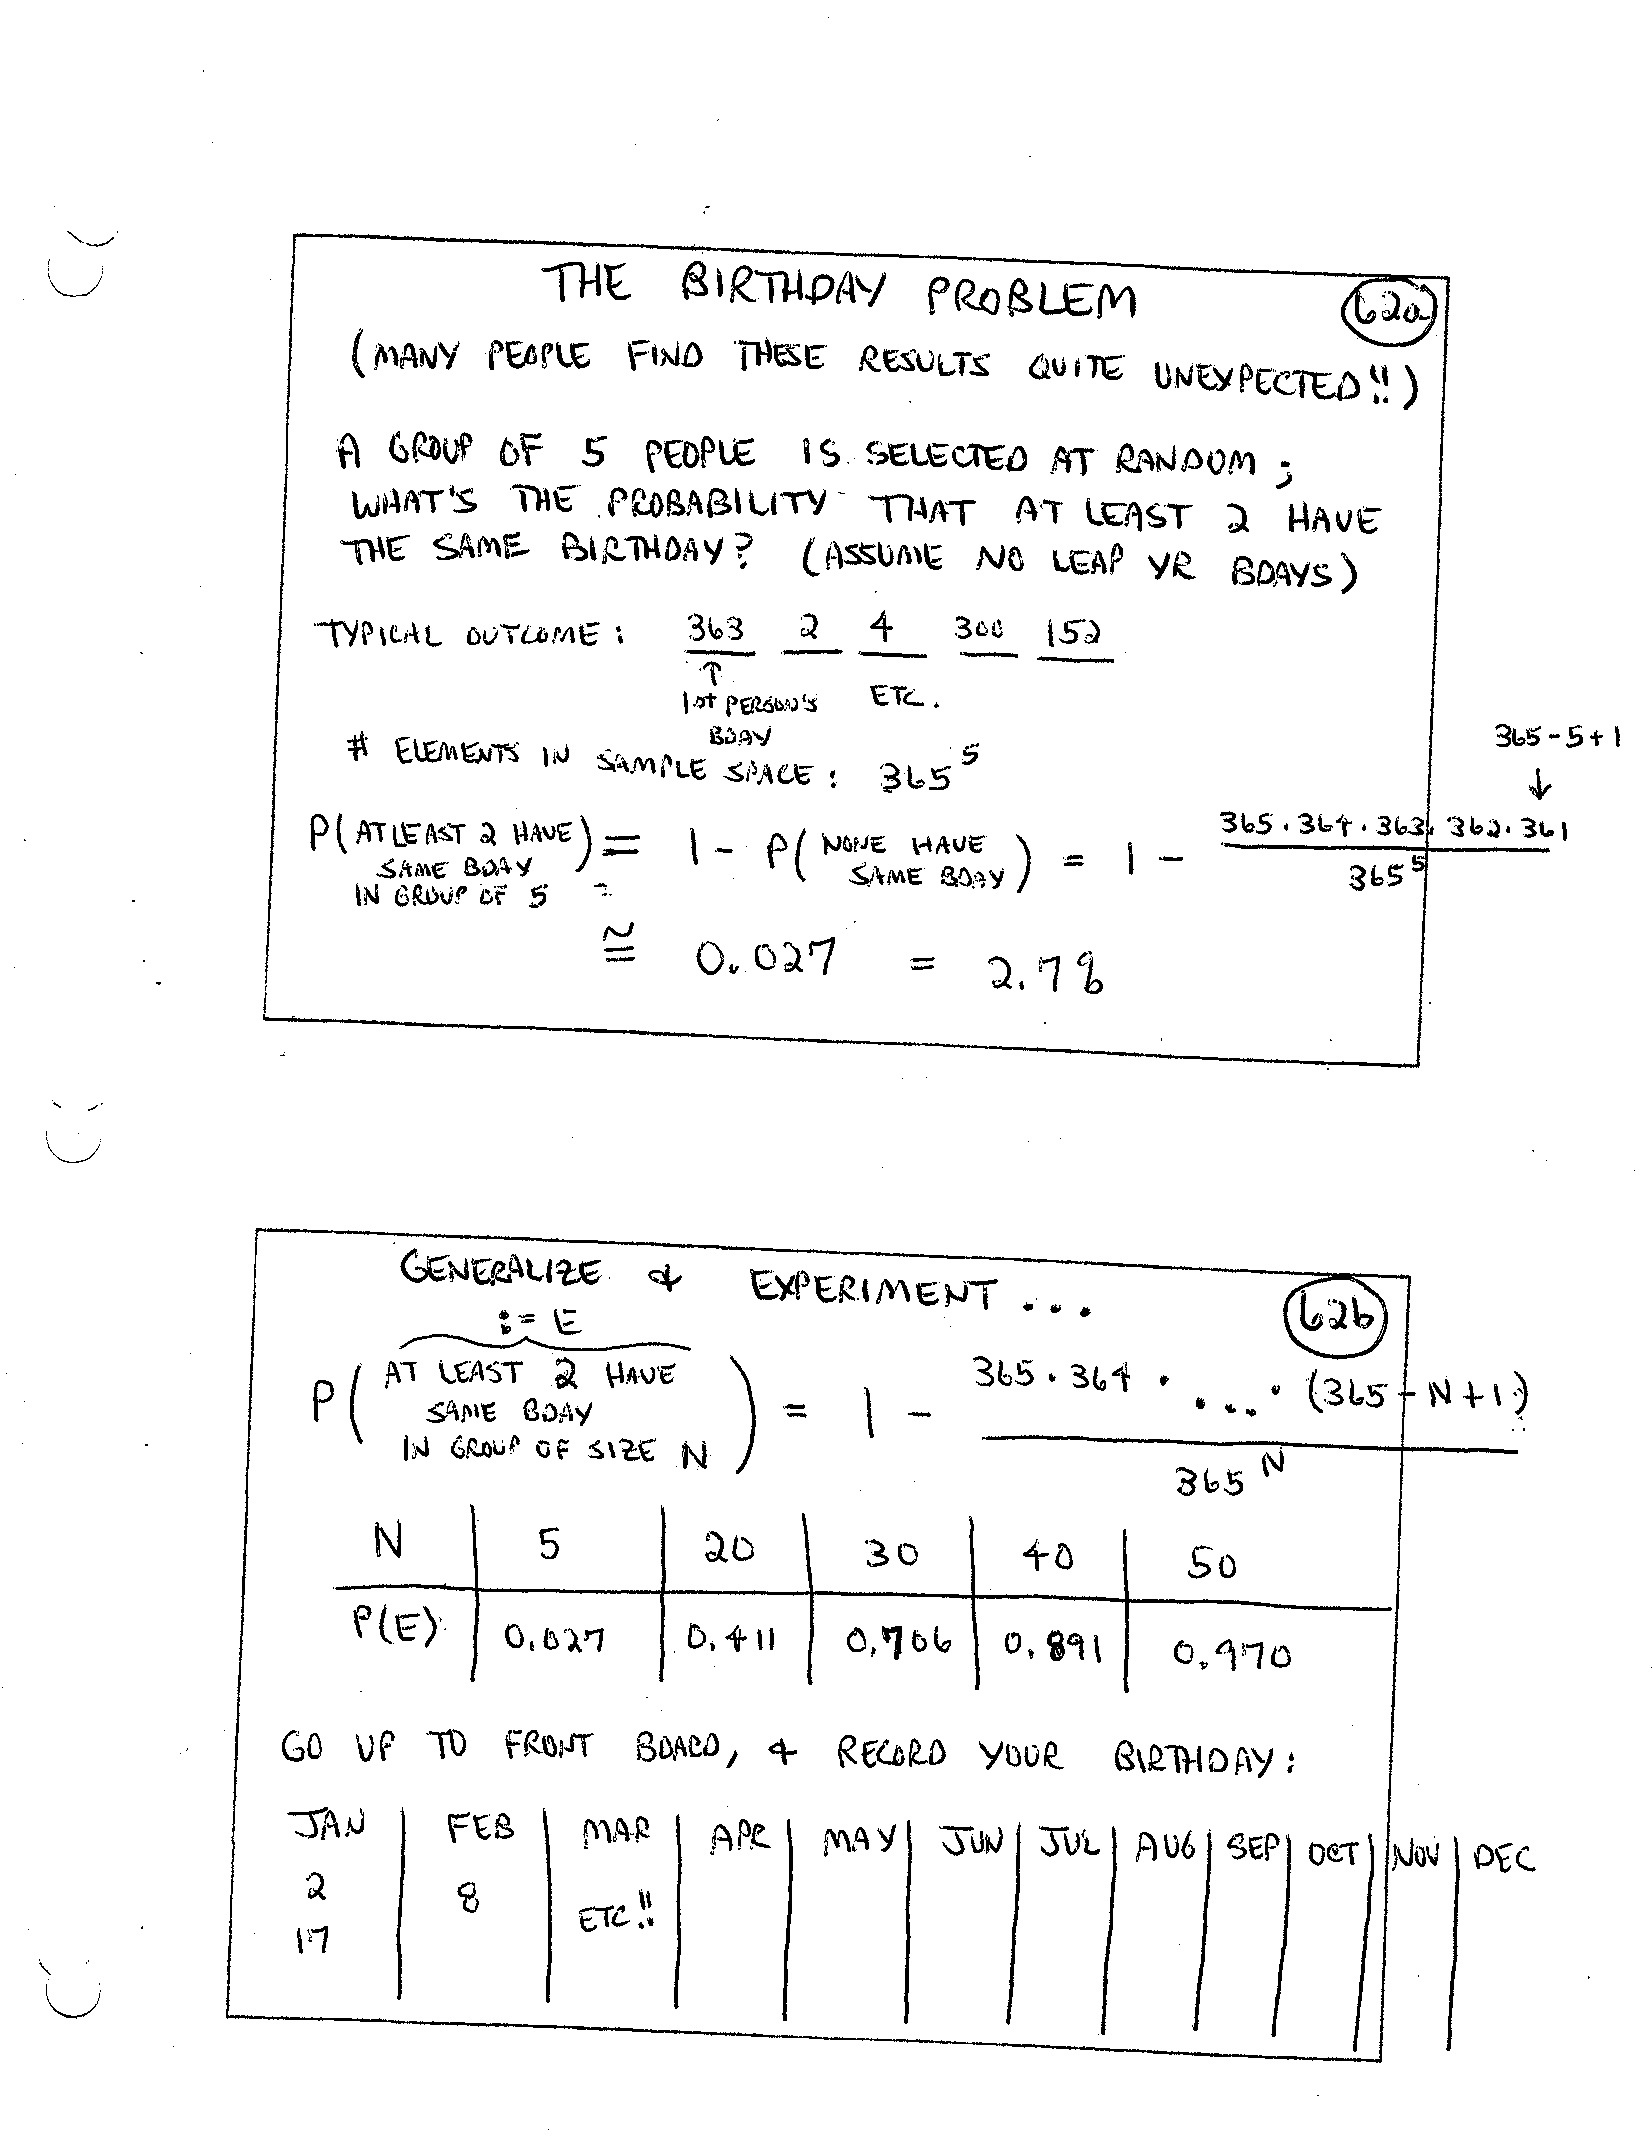 THE BIRTHDAY PROBLEM 62a
(MANY PEOPLE FIND THESE RESULTS QUITE UNEXPECTED!!)
A GROUP OF 5 PEOPLE IS SELECTED AT RANDOM;
WHAT'S THE PROBABILITY THAT AT LEAST 2 HAVE
THE SAME BIRTHDAY? (ASSUME NO LEAP YR BDAYS)
TYPICAL OUTCOME: 363 2 4 300 152
↑
1st PERSON'S ETC.
BDAY
# ELEMENTS IN SAMPLE SPACE: 365^5
365-5+1
↓
P(AT LEAST 2 HAVE SAME BDAY IN GROUP OF 5) = 1 - P(NONE HAVE SAME BDAY) = 1 - 365·364·363·362·361 / 365^5
≅ 0.027 = 2.7%
GENERALIZE & EXPERIMENT... 62b
:= E
P(AT LEAST 2 HAVE SAME BDAY IN GROUP OF SIZE N) = 1 - 365·364· ... ·(365-N+1) / 365^N
N 5 20 30 40 50
P(E) 0.027 0.411 0.706 0.891 0.970
GO UP TO FRONT BOARD, & RECORD YOUR BIRTHDAY:
JAN FEB MAR APR MAY JUN JUL AUG SEP OCT NOV DEC
2 8 ETC!!
17